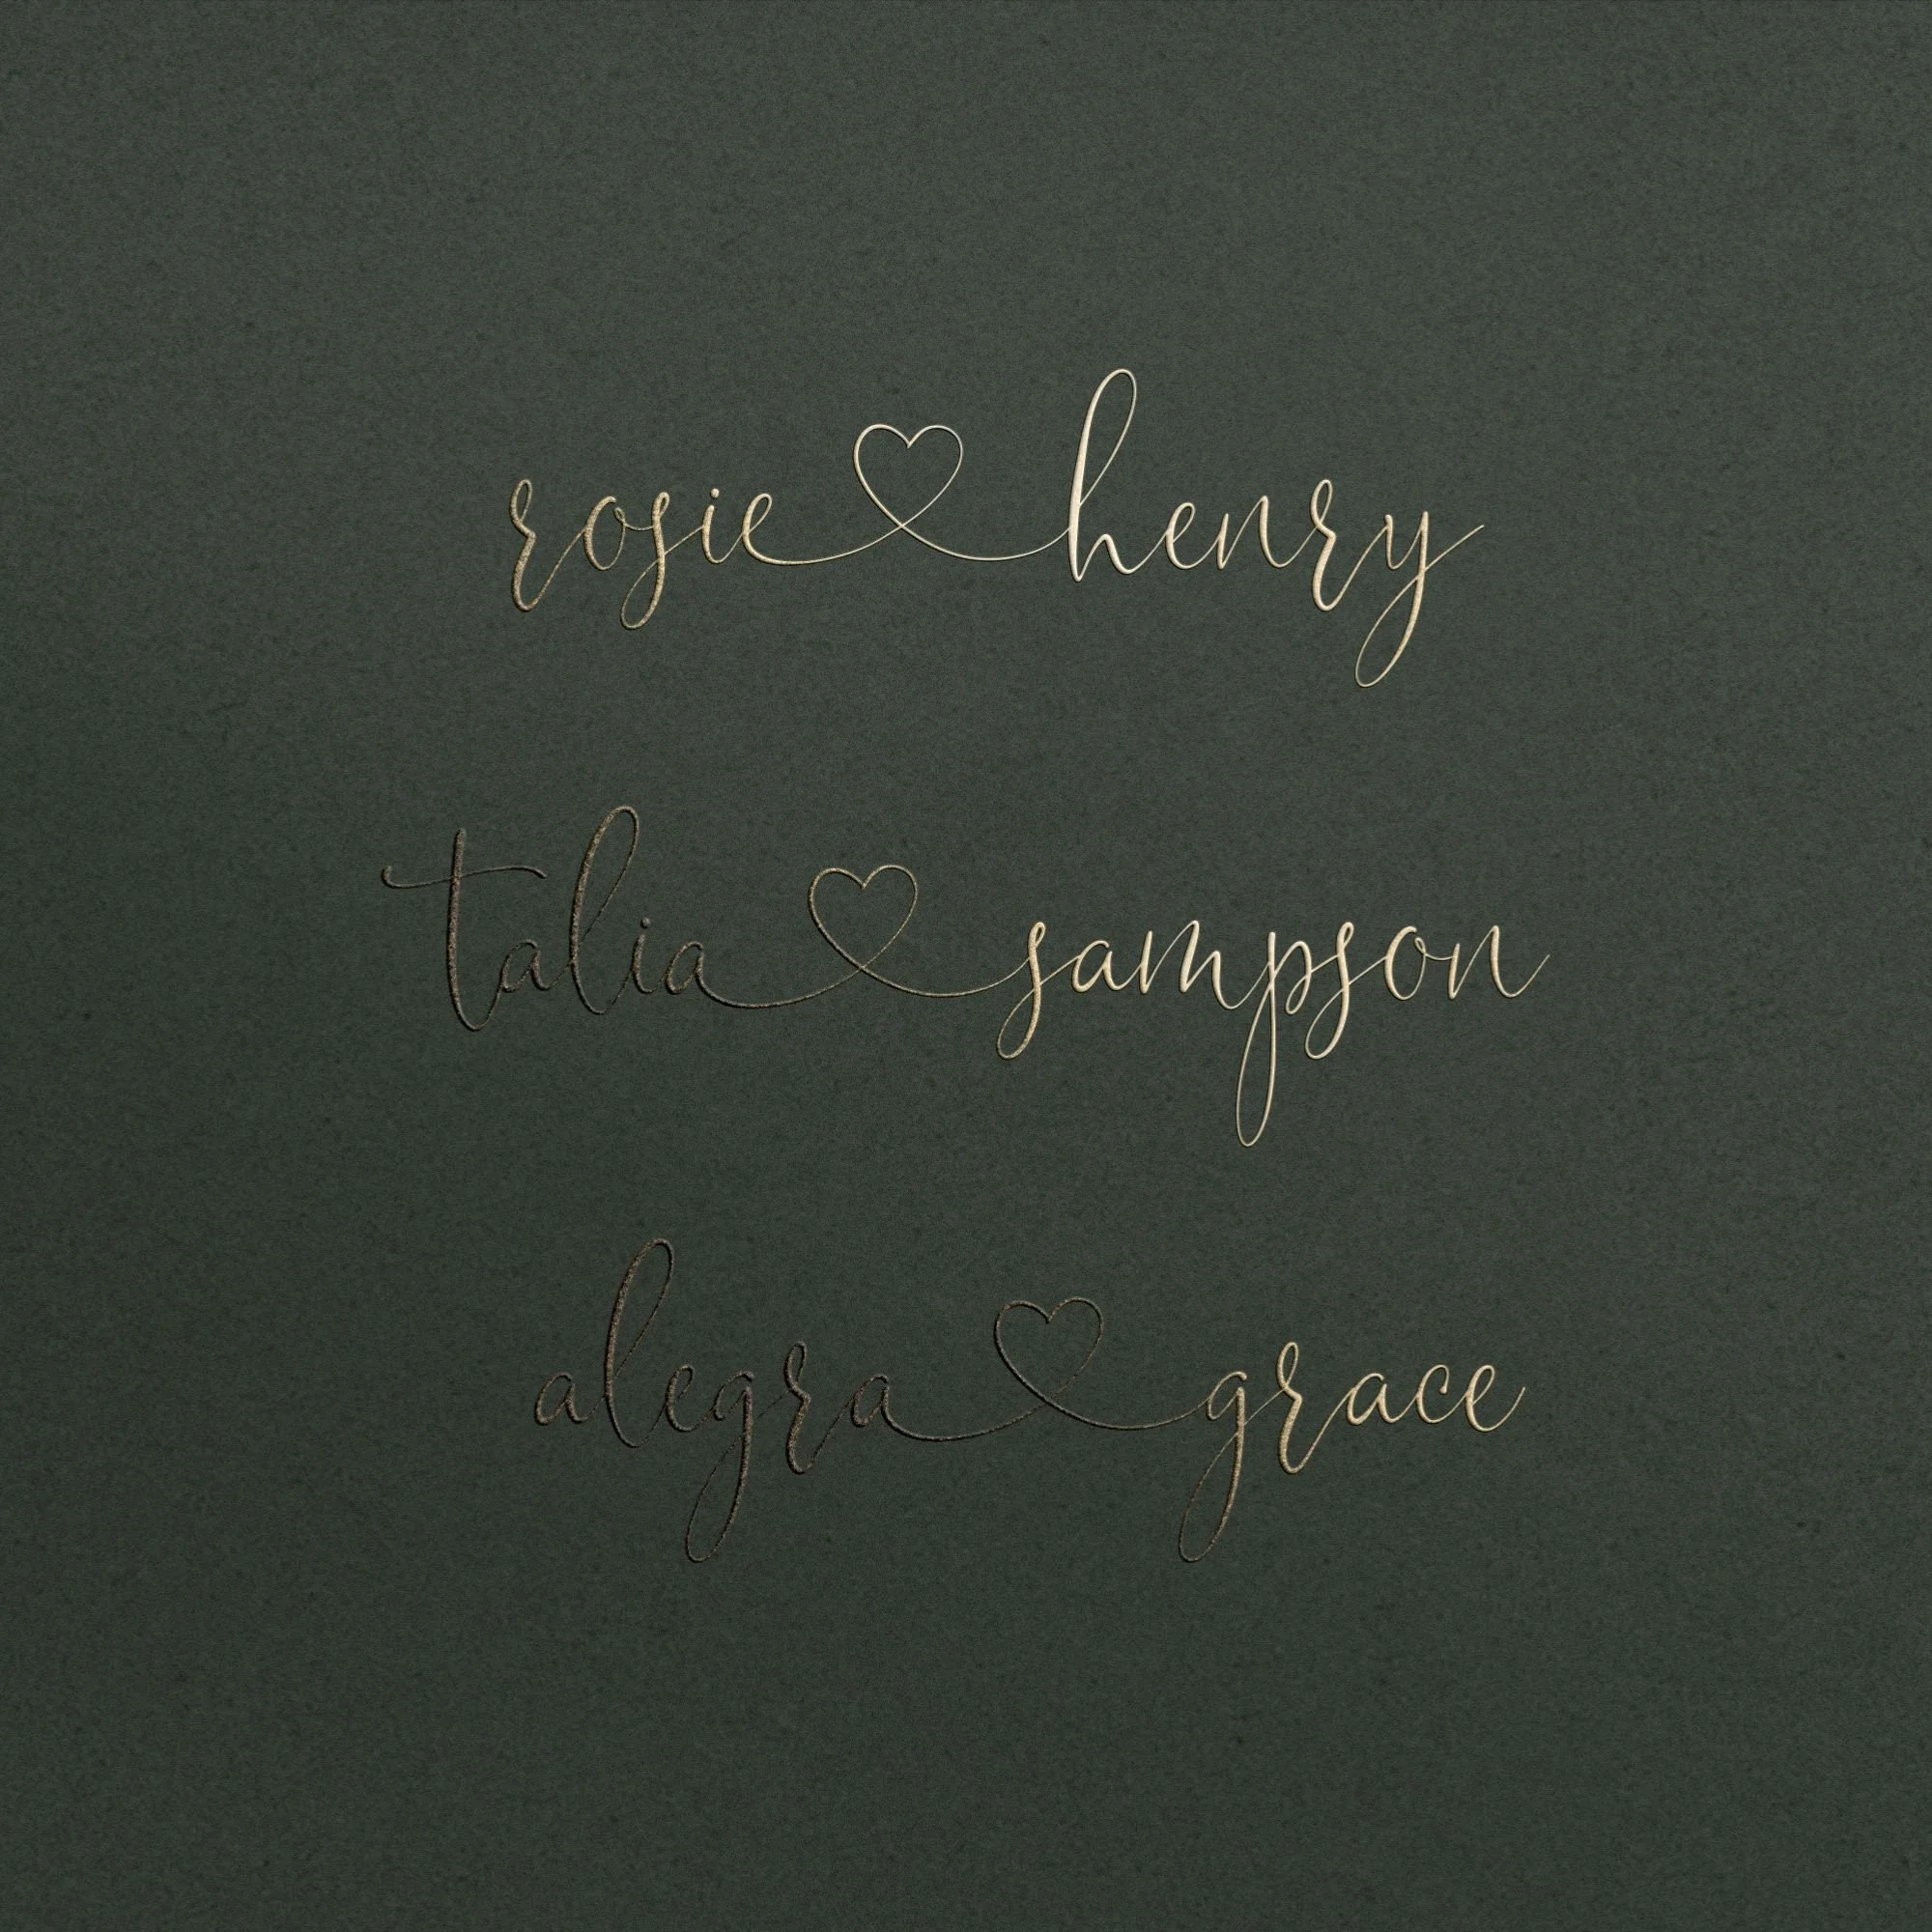 rosie♡henry
talia♡sampson
alegra♡grace